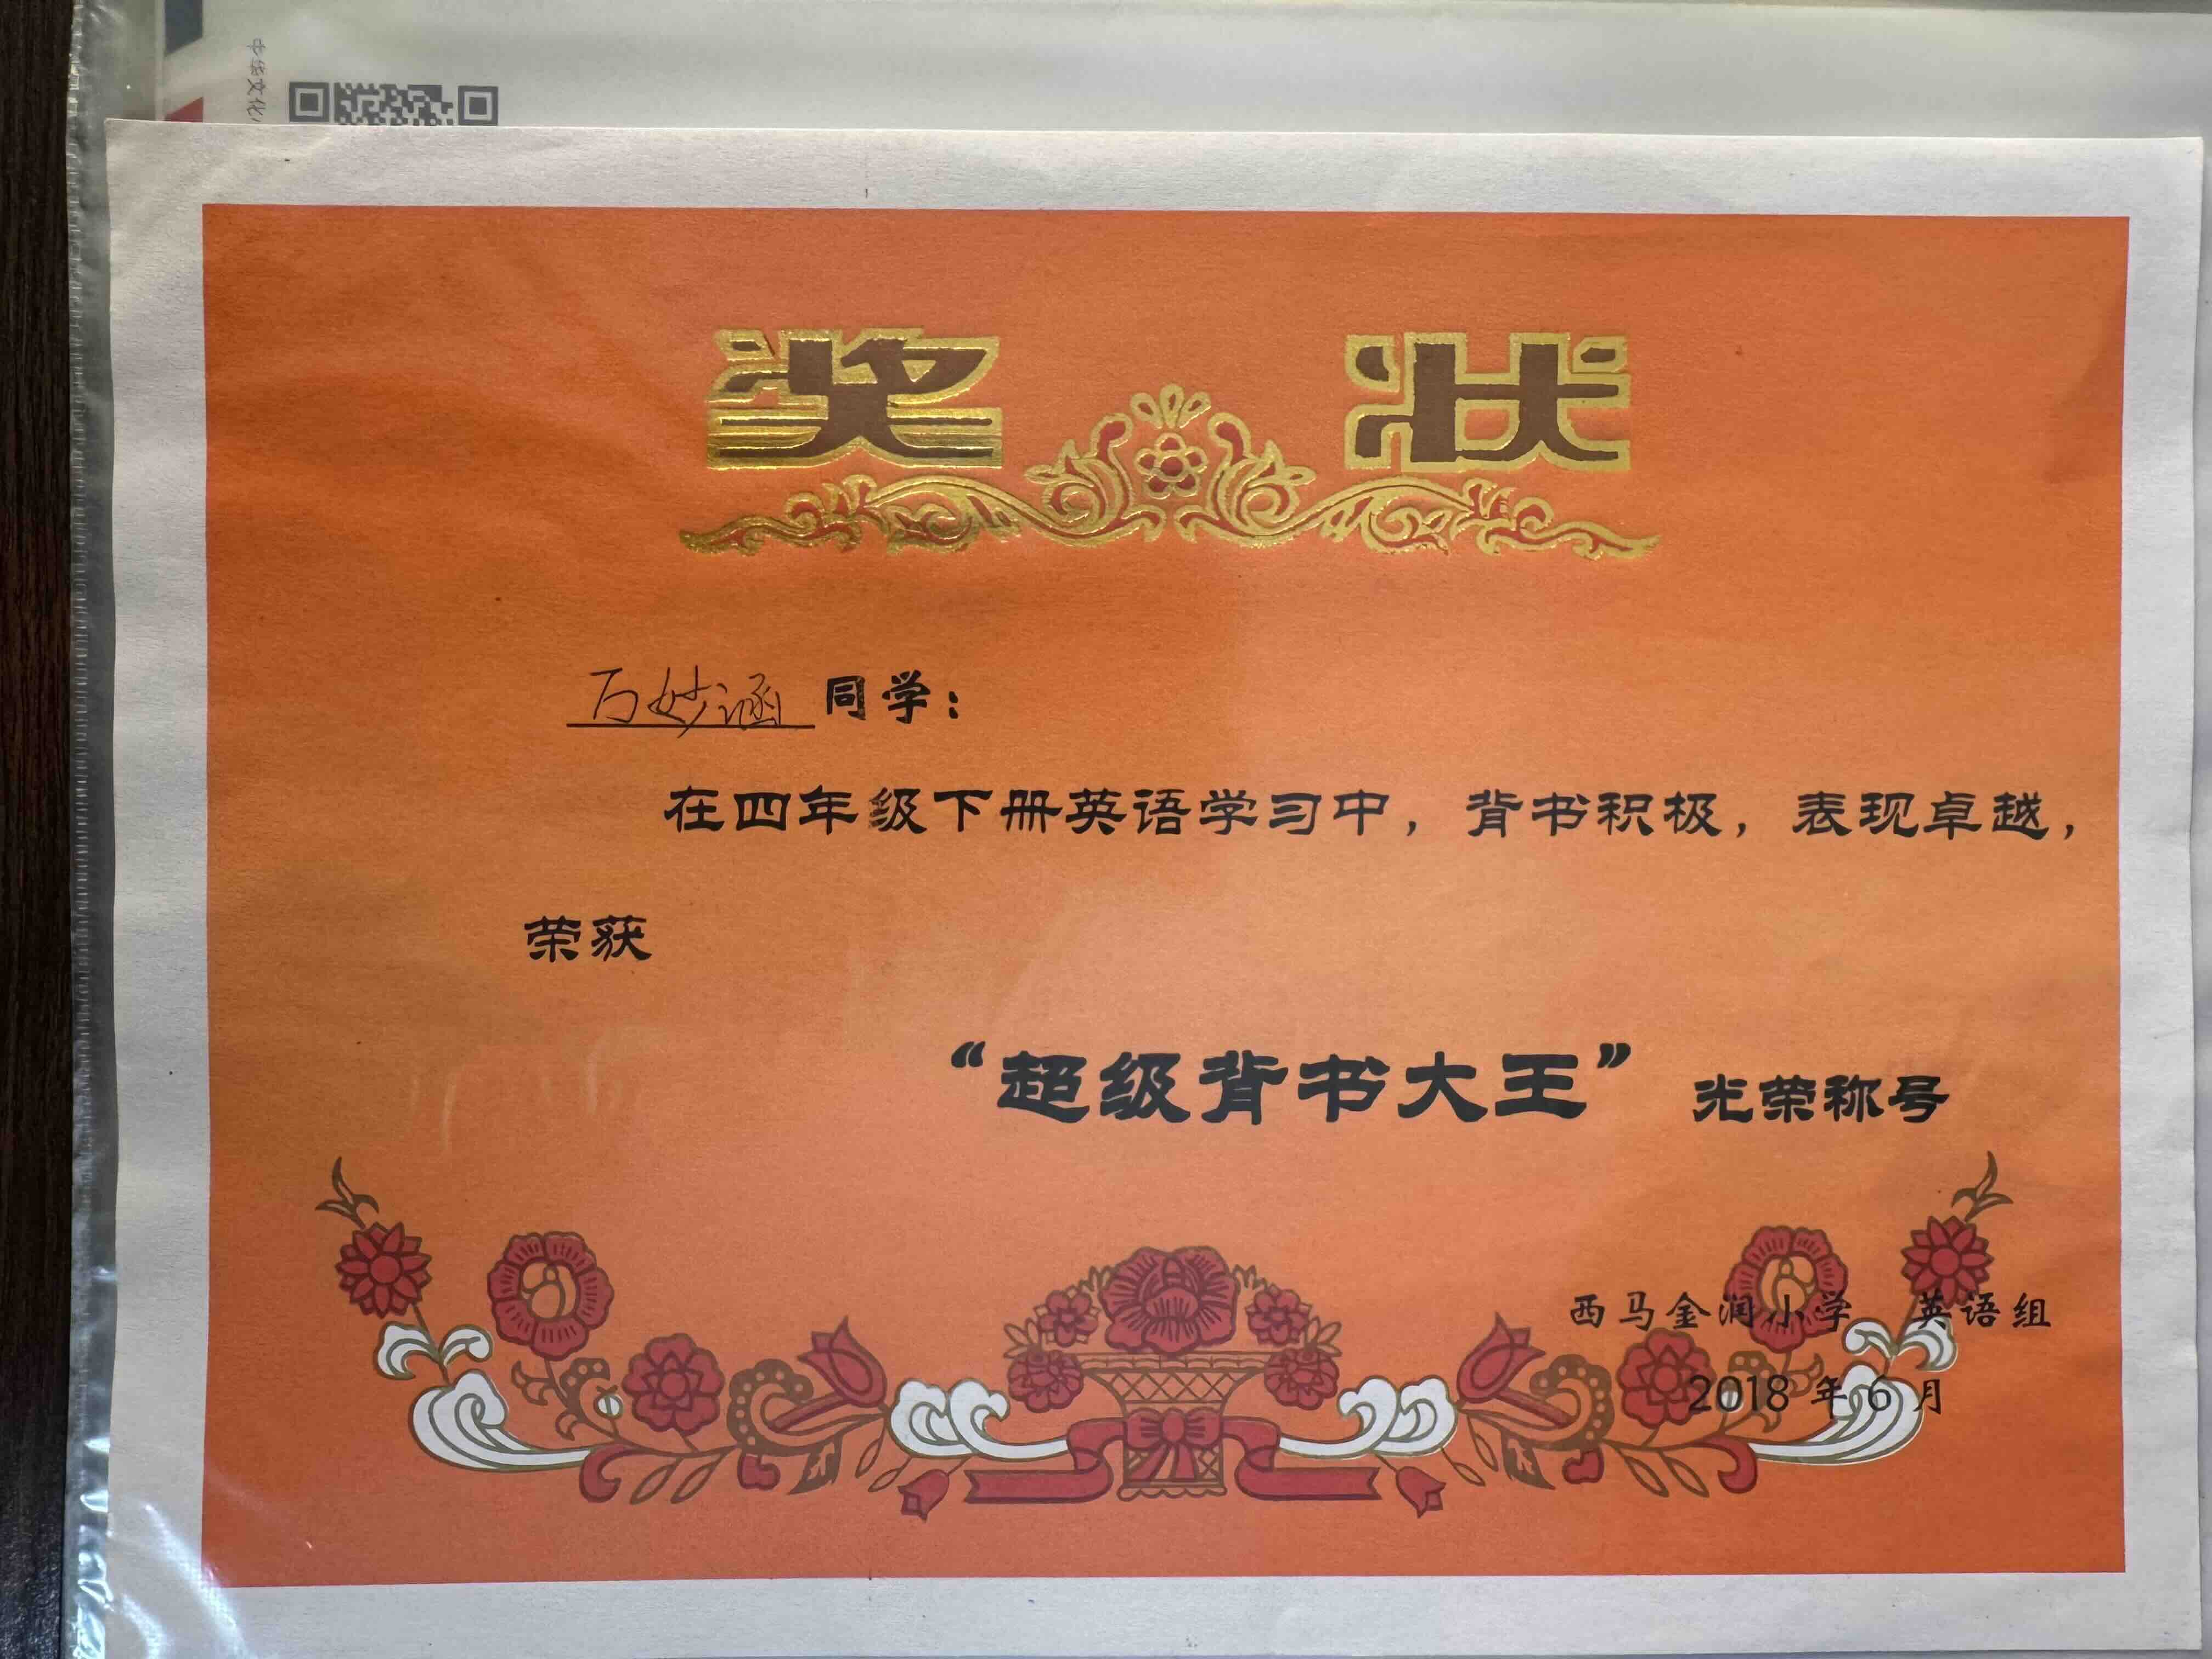 中华文化
奖 状
万妙涵 同学：
在四年级下册英语学习中，背书积极，表现卓越，
荣获
“超级背书大王” 光荣称号
西马金润小学 英语组
2018 年 6 月